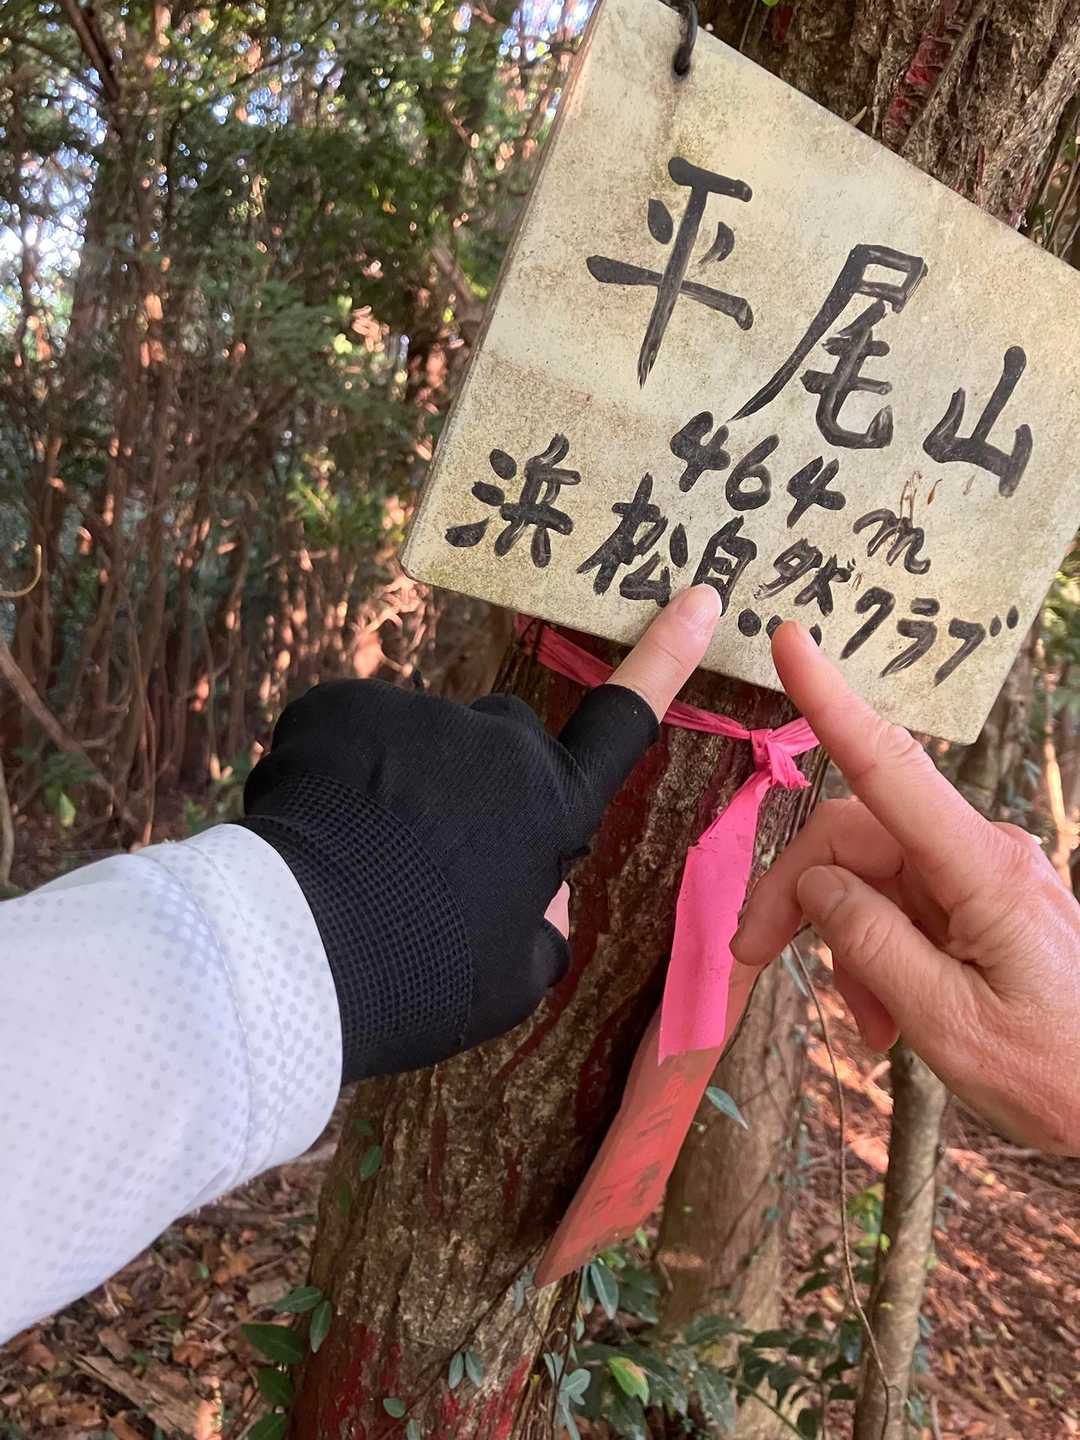 平尾山
464m
浜松自然クラブ